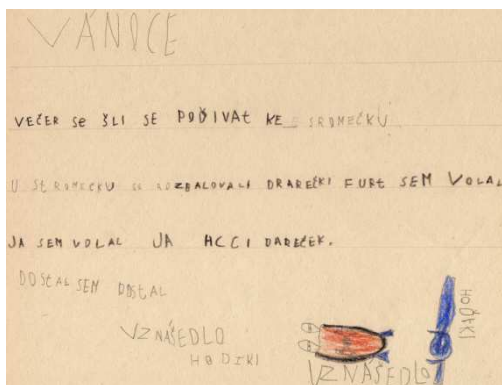 VÁNOCE
VEČER Se ŠLI SE POĎIVAt KE SROMEČKU
U StROMECKU se ROZBALOVALI DRAREČKI FURt SEM VOLAL
JA SEM VOLAL JA HCCI DAREČEK.
DOStAL SEM DOStAL
VZNÁŠEDLO
HODIKI
HOĎTKI
VZNÁŠEDLO